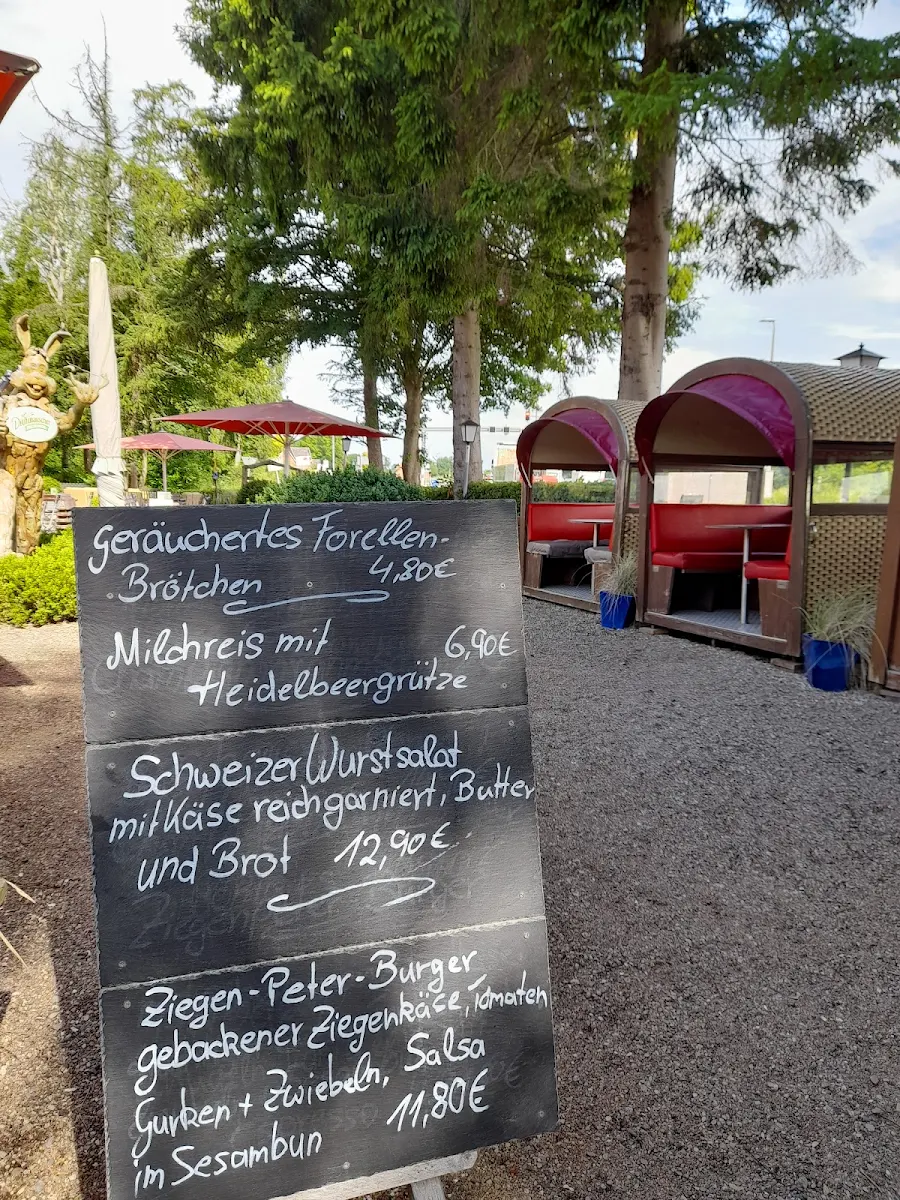 Geräuchertes Forellen-
Brötchen 4,80€
Milchreis mit 6,90€
Heidelbeergrütze
Schweizer Wurstsalat
mit Käse reich garniert, Butter
und Brot 12,90€
Ziegen-Peter-Burger
gebackener Ziegenkäse, Tomaten
Gurken + Zwiebeln, Salsa
im Sesambun 11,80€